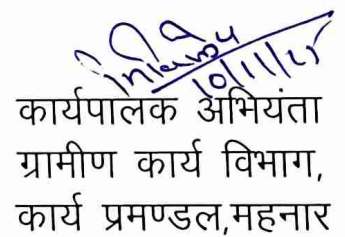 10/11/25
कार्यपालक अभियंता
ग्रामीण कार्य विभाग,
कार्य प्रमण्डल,महनार